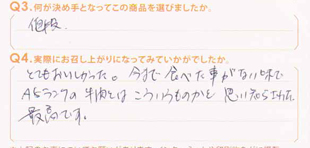 Q3.何が決め手となってこの商品を選びましたか。
値段。
Q4.実際にお召し上がりになってみていかがでしたか。
とてもおいしかった。今まで食べた事がない味で
A5ランクの牛肉とはこういうものかと思い知らされた
最高です。